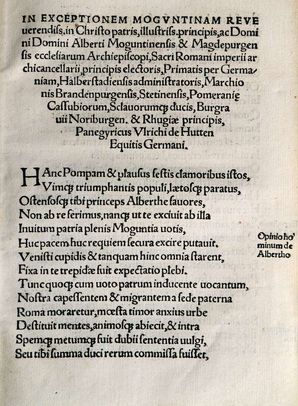 IN EXCEPTIONEM MOGVNTINAM REVE
uerendiss, in Christo patris, illustriss. principis, ac Domi
ni Domini Alberti Moguntinensis & Magdepurgen
sis ecclesiarum Archiepiscopi, Sacri Romani imperii ar
chicancellarii, principis electoris, Primatis per Germa/
niam, Halberstadiensis administratoris, Marchio
nis Brandenpurgensis, Stetinensis, Pomeranię
Cassubiorum, Sclauorumq; ducis, Burgra
uii Noriburgen. & Rhugiæ principis,
Panegyricus Vlrichi de Hutten
Equitis Germani.
HAnc Pompam & plausus festis clamoribus istos,
Vimq; triumphantis populi, lætosq; paratus,
Ostensosq; tibi princeps Alberthe fauores,
Non ab re ferimus, nanq; ut te exciuit ab illa
Inuitum patria plenis Moguntia uotis,
Huc pacem huc requiem secura excire putauit.
Venisti cupidis & tanquam hinc omnia starent,
Fixa in te trepidæ fuit expectatio plebi.
Tunc quoq; cum uoto patrum inducente uocantum,
Nostra capessentem & migrantem a sede paterna
Roma moraretur, mœsta timor anxius urbe
Destituit mentes, animosq; abiecit, & intra
Spemq; metumq; fuit dubii sententia uulgi,
Seu tibi summa duci rerum commissa fuisset,
Opinio ho/
minum de
Albertho